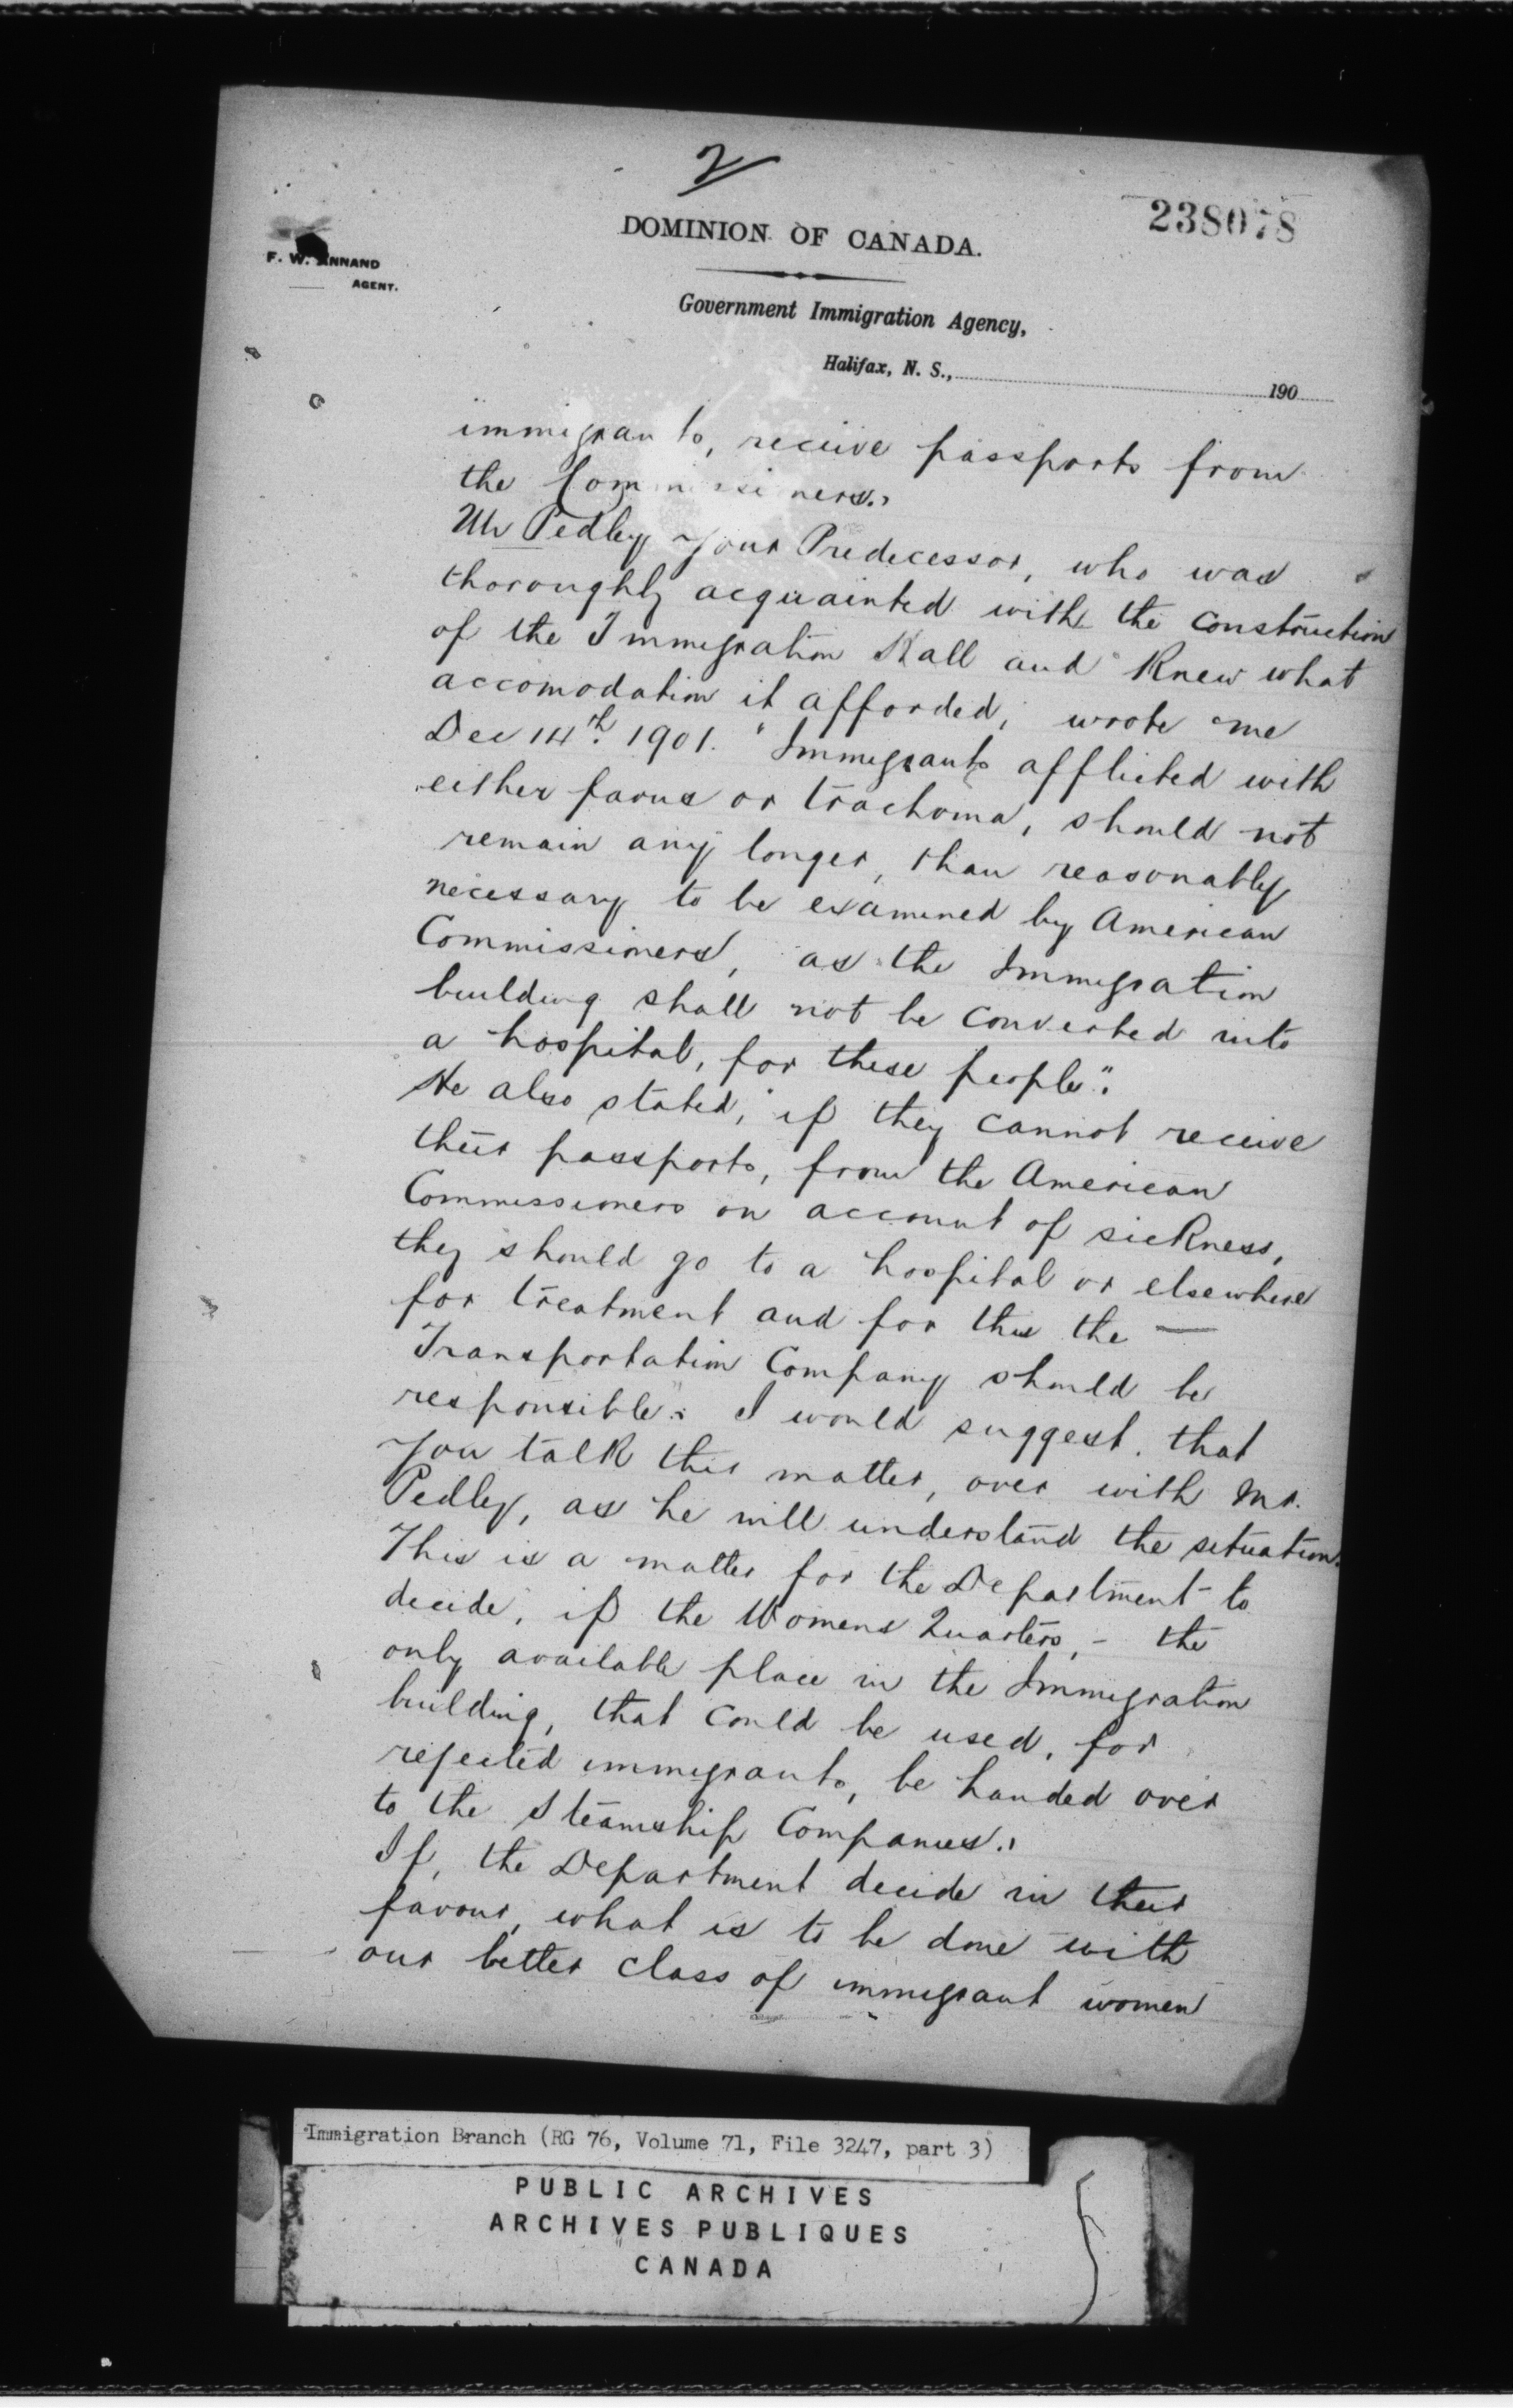 2
238078
DOMINION OF CANADA.
F. W. ANNAND
AGENT.
Government Immigration Agency,
Halifax, N. S., 190
immigrants, receive passports from
the Commissioners.
Mr Pedley your Predecessor, who was
thoroughly acquainted with the construction
of the Immigration Hall and Knew what
accomodation it afforded, wrote me
Dec 14th. 1901. "Immigrants afflicted with
either favus or trachoma, should not
remain any longer, than reasonably
necessary to be examined by American
Commissioners, as the Immigration
building shall not be converted into
a hospital, for these people".
He also stated, "if they cannot receive
their passports, from the American
Commissioners on account of sickness,
they should go to a hospital or elsewhere
for treatment and for this the —
Transportation Company should be
responsible". I would suggest that
you talk this matter, over with Mr.
Pedley, as he will understand the situation.
This is a matter for the Department to
decide, if the Womens Quarters, - the
only available place in the Immigration
building, that could be used, for
rejected immigrants, be handed over
to the Steamship Companies.
If, the Department decide in their
favour, what is to be done with
our better class of immigrant women
Immigration Branch (RG 76, Volume 71, File 3247, part 3)
PUBLIC ARCHIVES
ARCHIVES PUBLIQUES
CANADA